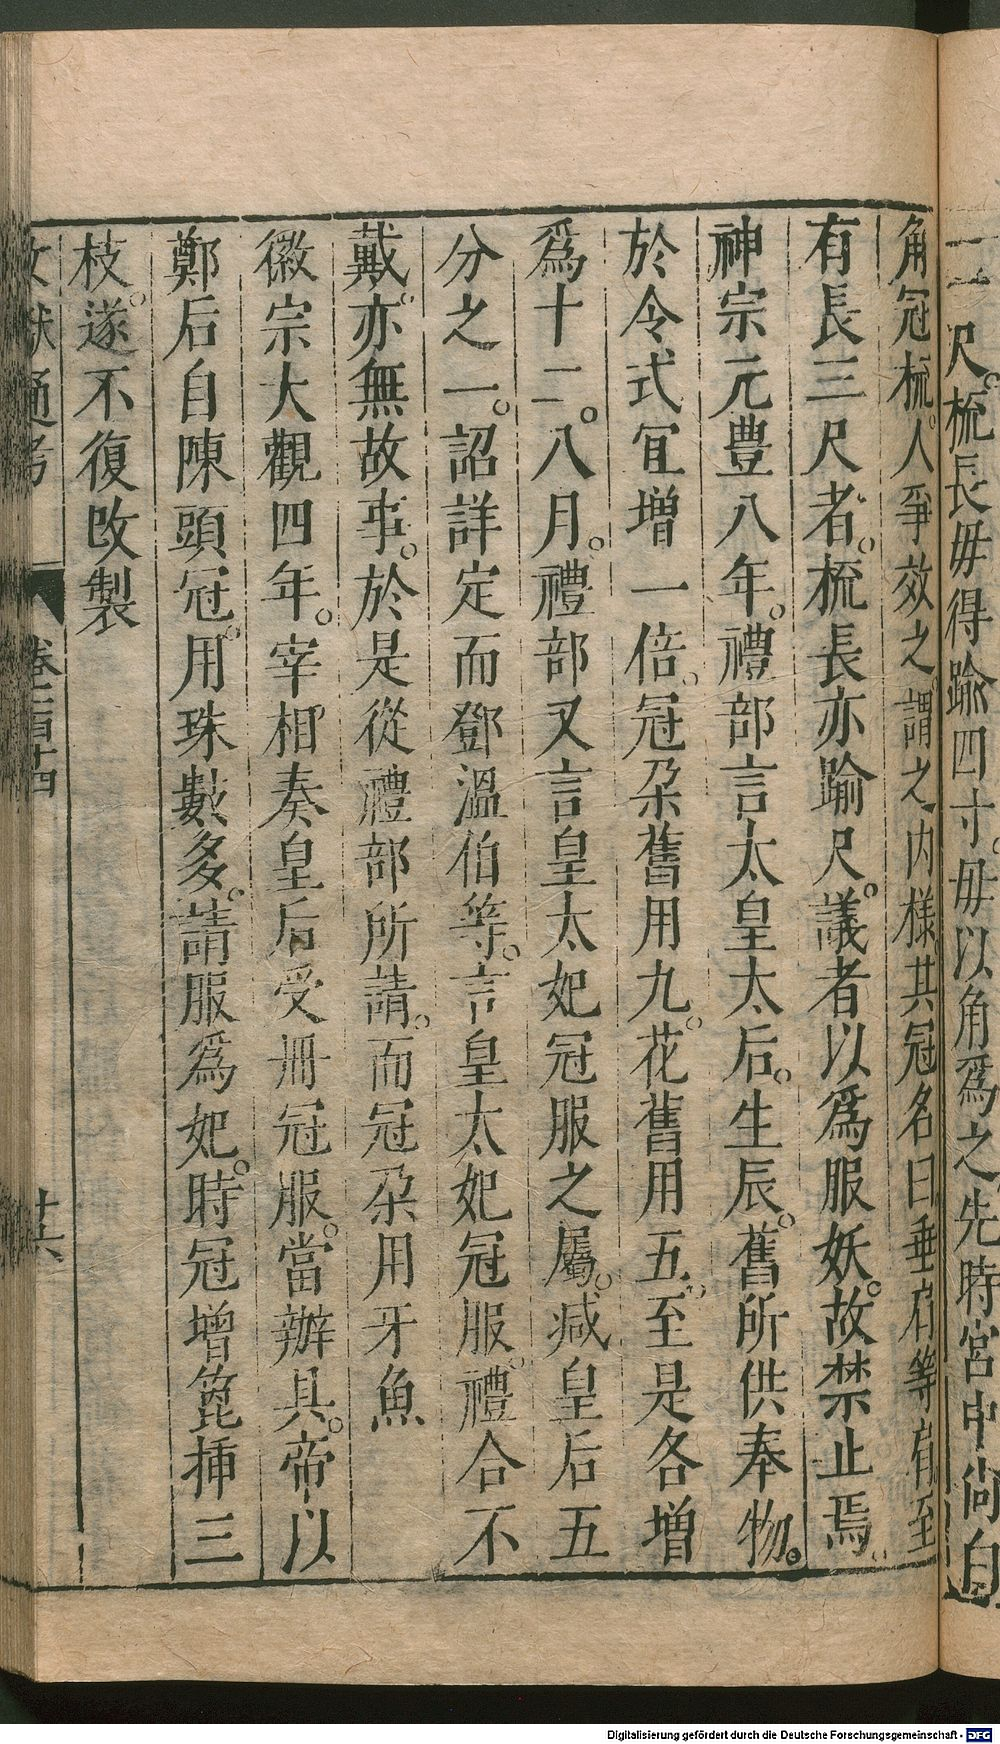 一尺。梳長毋得踰四寸。毋以角爲之。先時宮中尚白
角冠梳。人爭效之。謂之内樣。其冠名曰垂肩等肩。至
有長三尺者。梳長亦踰尺。議者以爲服妖。故禁止焉。
神宗元豊八年。禮部言太皇太后。生辰。舊所供奉物。
於令式宜增一倍。冠朶舊用九。花舊用五。至是各增
爲十二。八月。禮部又言皇太妃冠服之屬。減皇后五
分之一。詔詳定而鄧溫伯等。言皇太妃冠服。禮合不
戴。亦無故事。於是從禮部所請。而冠朶用牙魚
徽宗大觀四年。宰相奏皇后受冊冠服。當辦具。帝以
鄭后自陳頭冠。用珠數多。請服爲妃。時冠增篦揷三
枝。遂不復改製
文獻通考 卷一百十四 十六
Digitalisierung gefördert durch die Deutsche Forschungsgemeinschaft - DFG